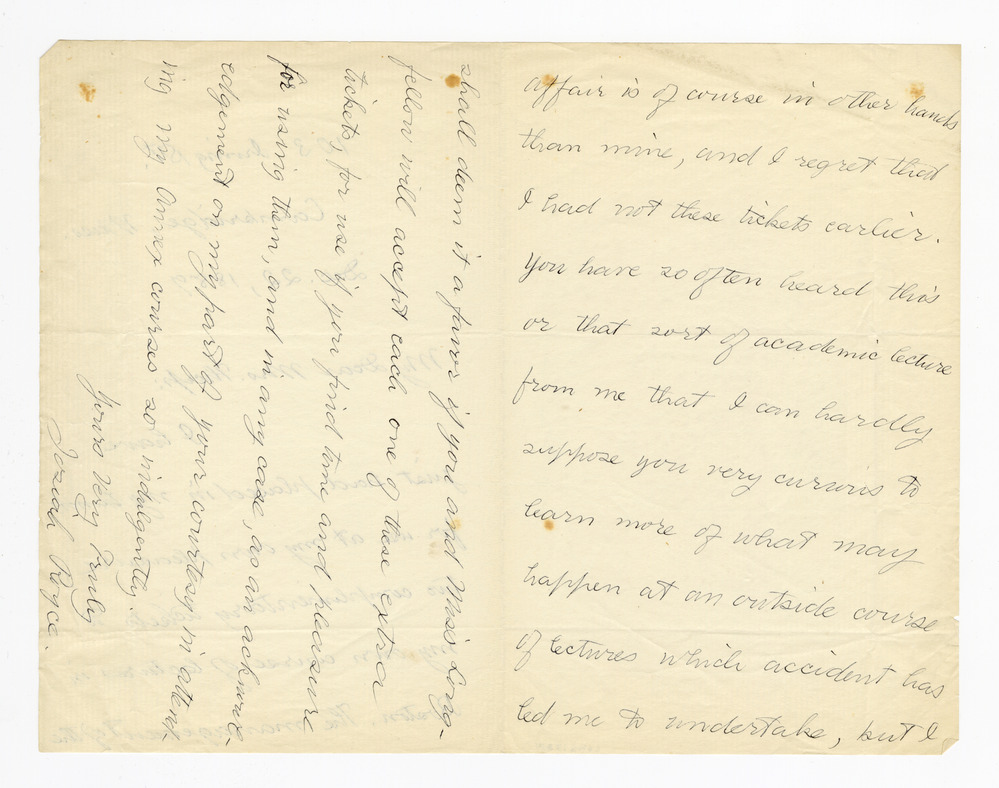 affair is of course in other hands
than mine, and I regret that
I had not these tickets earlier.
You have so often heard this
or that sort of academic lecture
from me that I can hardly
suppose you very curious to
learn more of what may
happen at an outside course
of lectures which accident has
led me to undertake, but I
shall deem it a favor if you and Miss Long-
fellow will accept each one of these extra
tickets for use if you find time and pleasure
for using them, and in any case, as an acknowl-
edgement on my part of your courtesy in attend-
ing my Annex courses so indulgently.
Yours Very Truly
Josiah Royce.